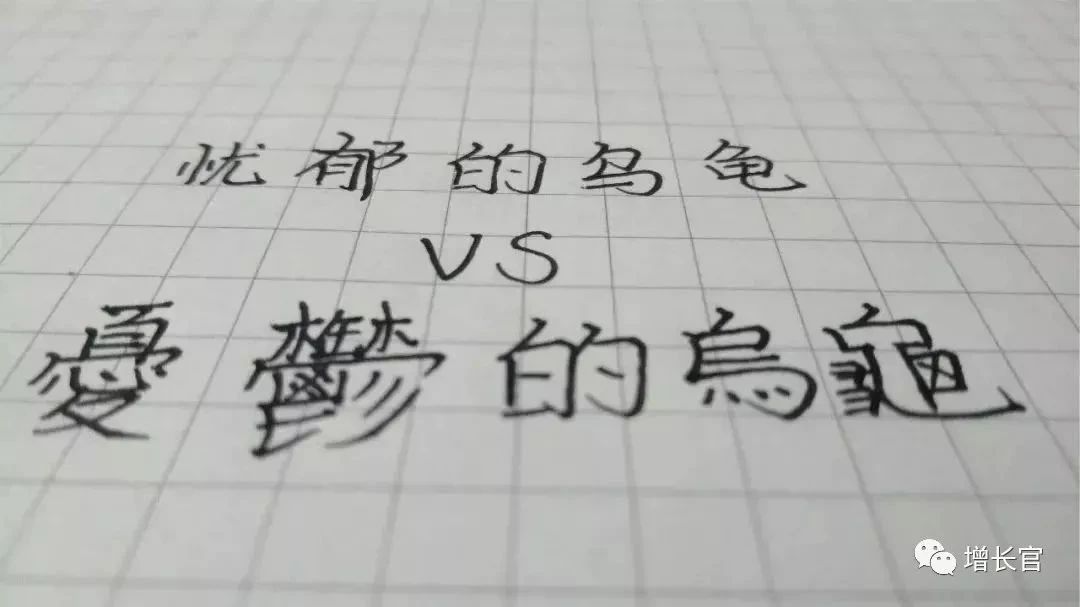 忧郁的乌龟
VS
憂鬱的烏龜
增长官